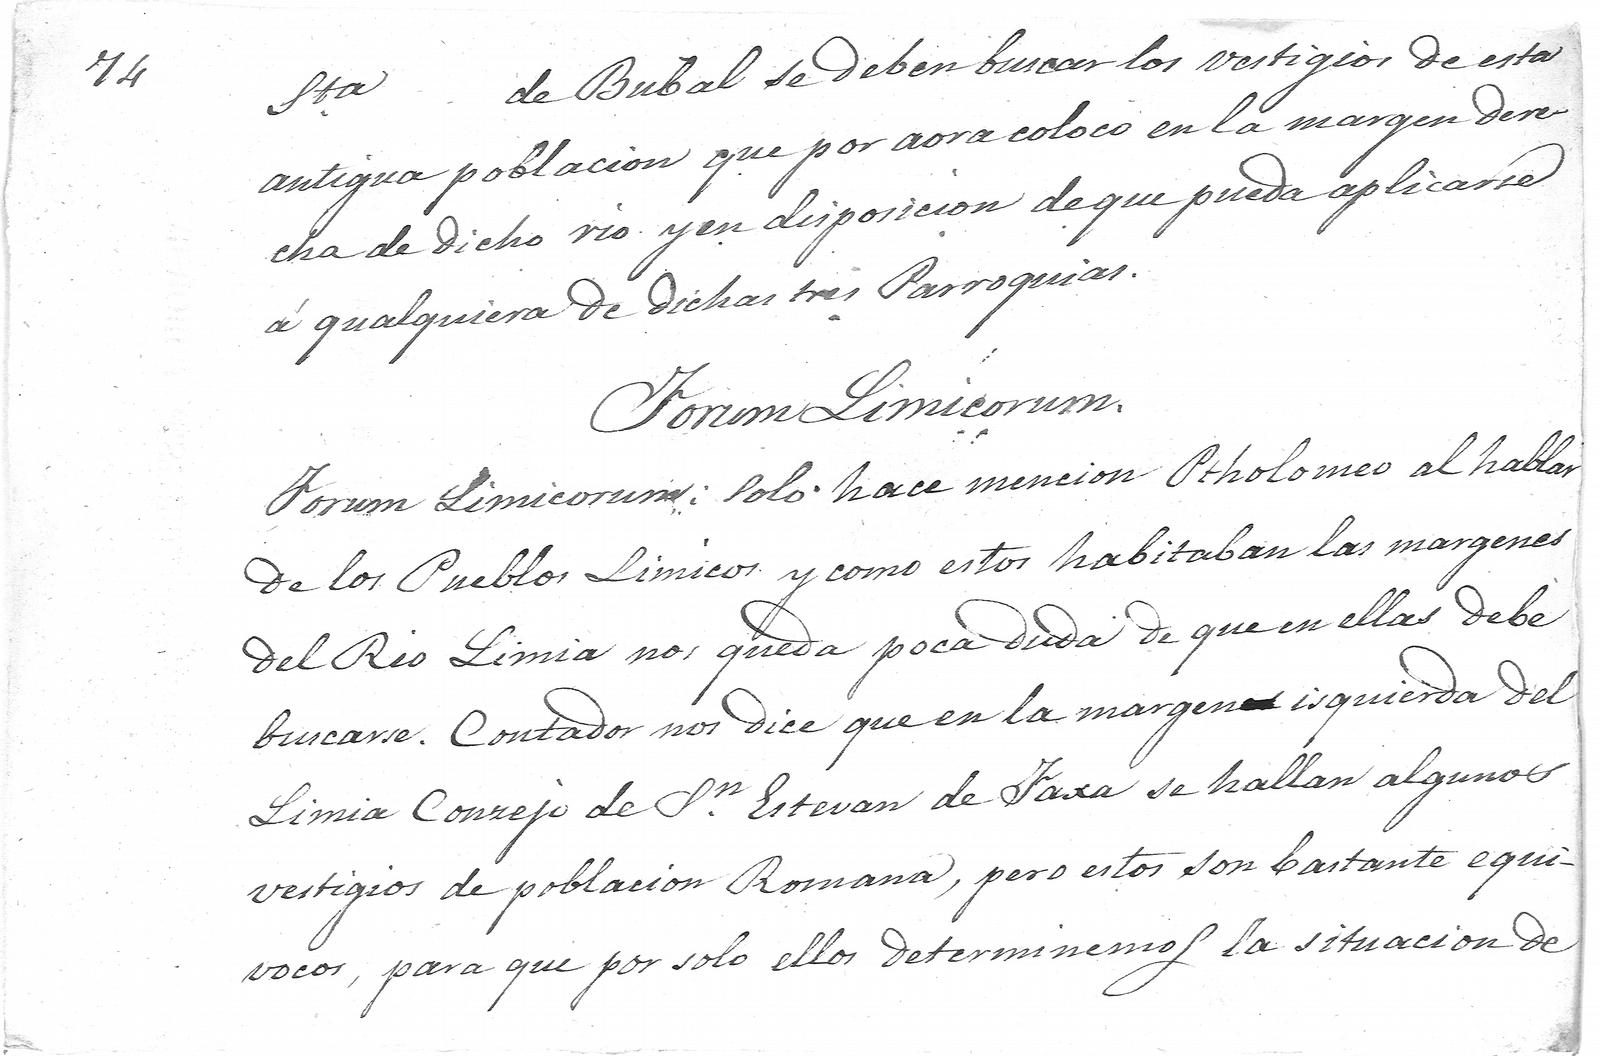 74
Sta de Bubal se deben buscar los vestigios de esta
antigua poblacion que por aora coloco en la margen dere-
cha de dicho rio y en disposicion de que pueda aplicarse
á qualquiera de dichas tres Parroquias.
Forum Limicorum.
Forum Limicorum: solo hace mencion Ptholomeo al hablar
de los Pueblos Limicos y como estos habitaban las margenes
del Rio Limia nos queda poca duda de que en ellas debe
buscarse. Contador nos dice que en la margen isquierda del
Limia Conzejo de Sn. Estevan de Faxa se hallan algunos
vestigios de poblacion Romana, pero estos son bastante equi-
vocos, para que por solo ellos determinemos la situacion de